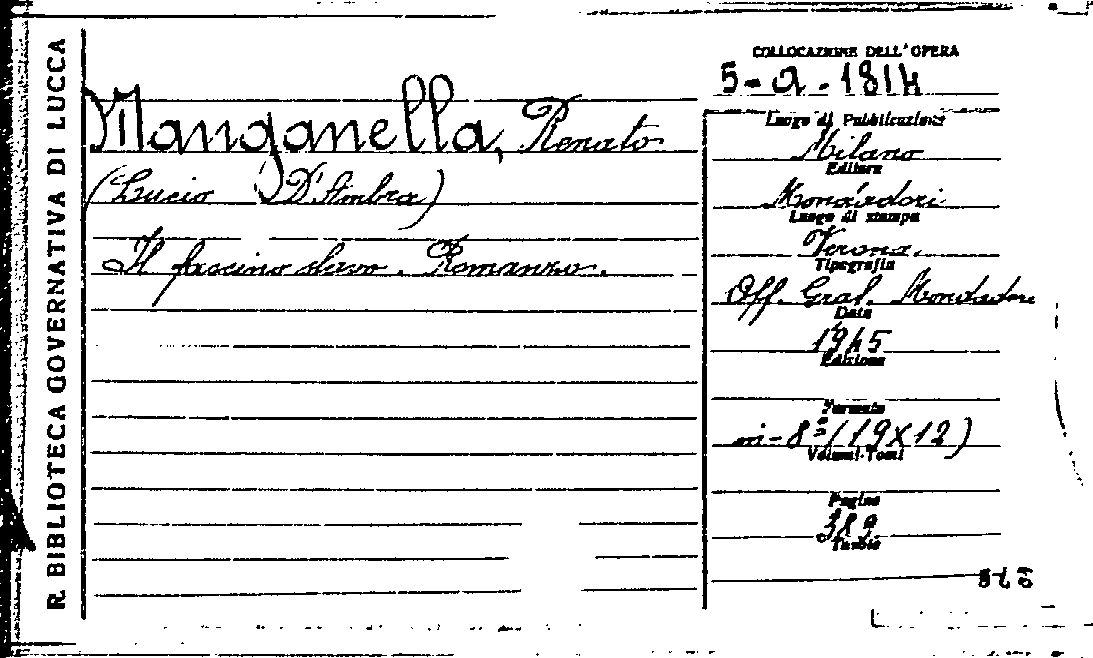 R. BIBLIOTECA GOVERNATIVA DI LUCCA
Manganella, Renato
(Lucio D'Ambra)
Il fascino slavo. Romanzo.
COLLOCAZIONE DELL'OPERA
5-a.-1814
Luogo di Pubblicazione
Milano
Editore
Mondadori
Luogo di stampa
Verona.
Tipografia
Off. Graf. Mondadori
Data
1945
Edizione
Formato
in-8º (19X12)
Volumi-Tomi
Pagine
389
Tavole